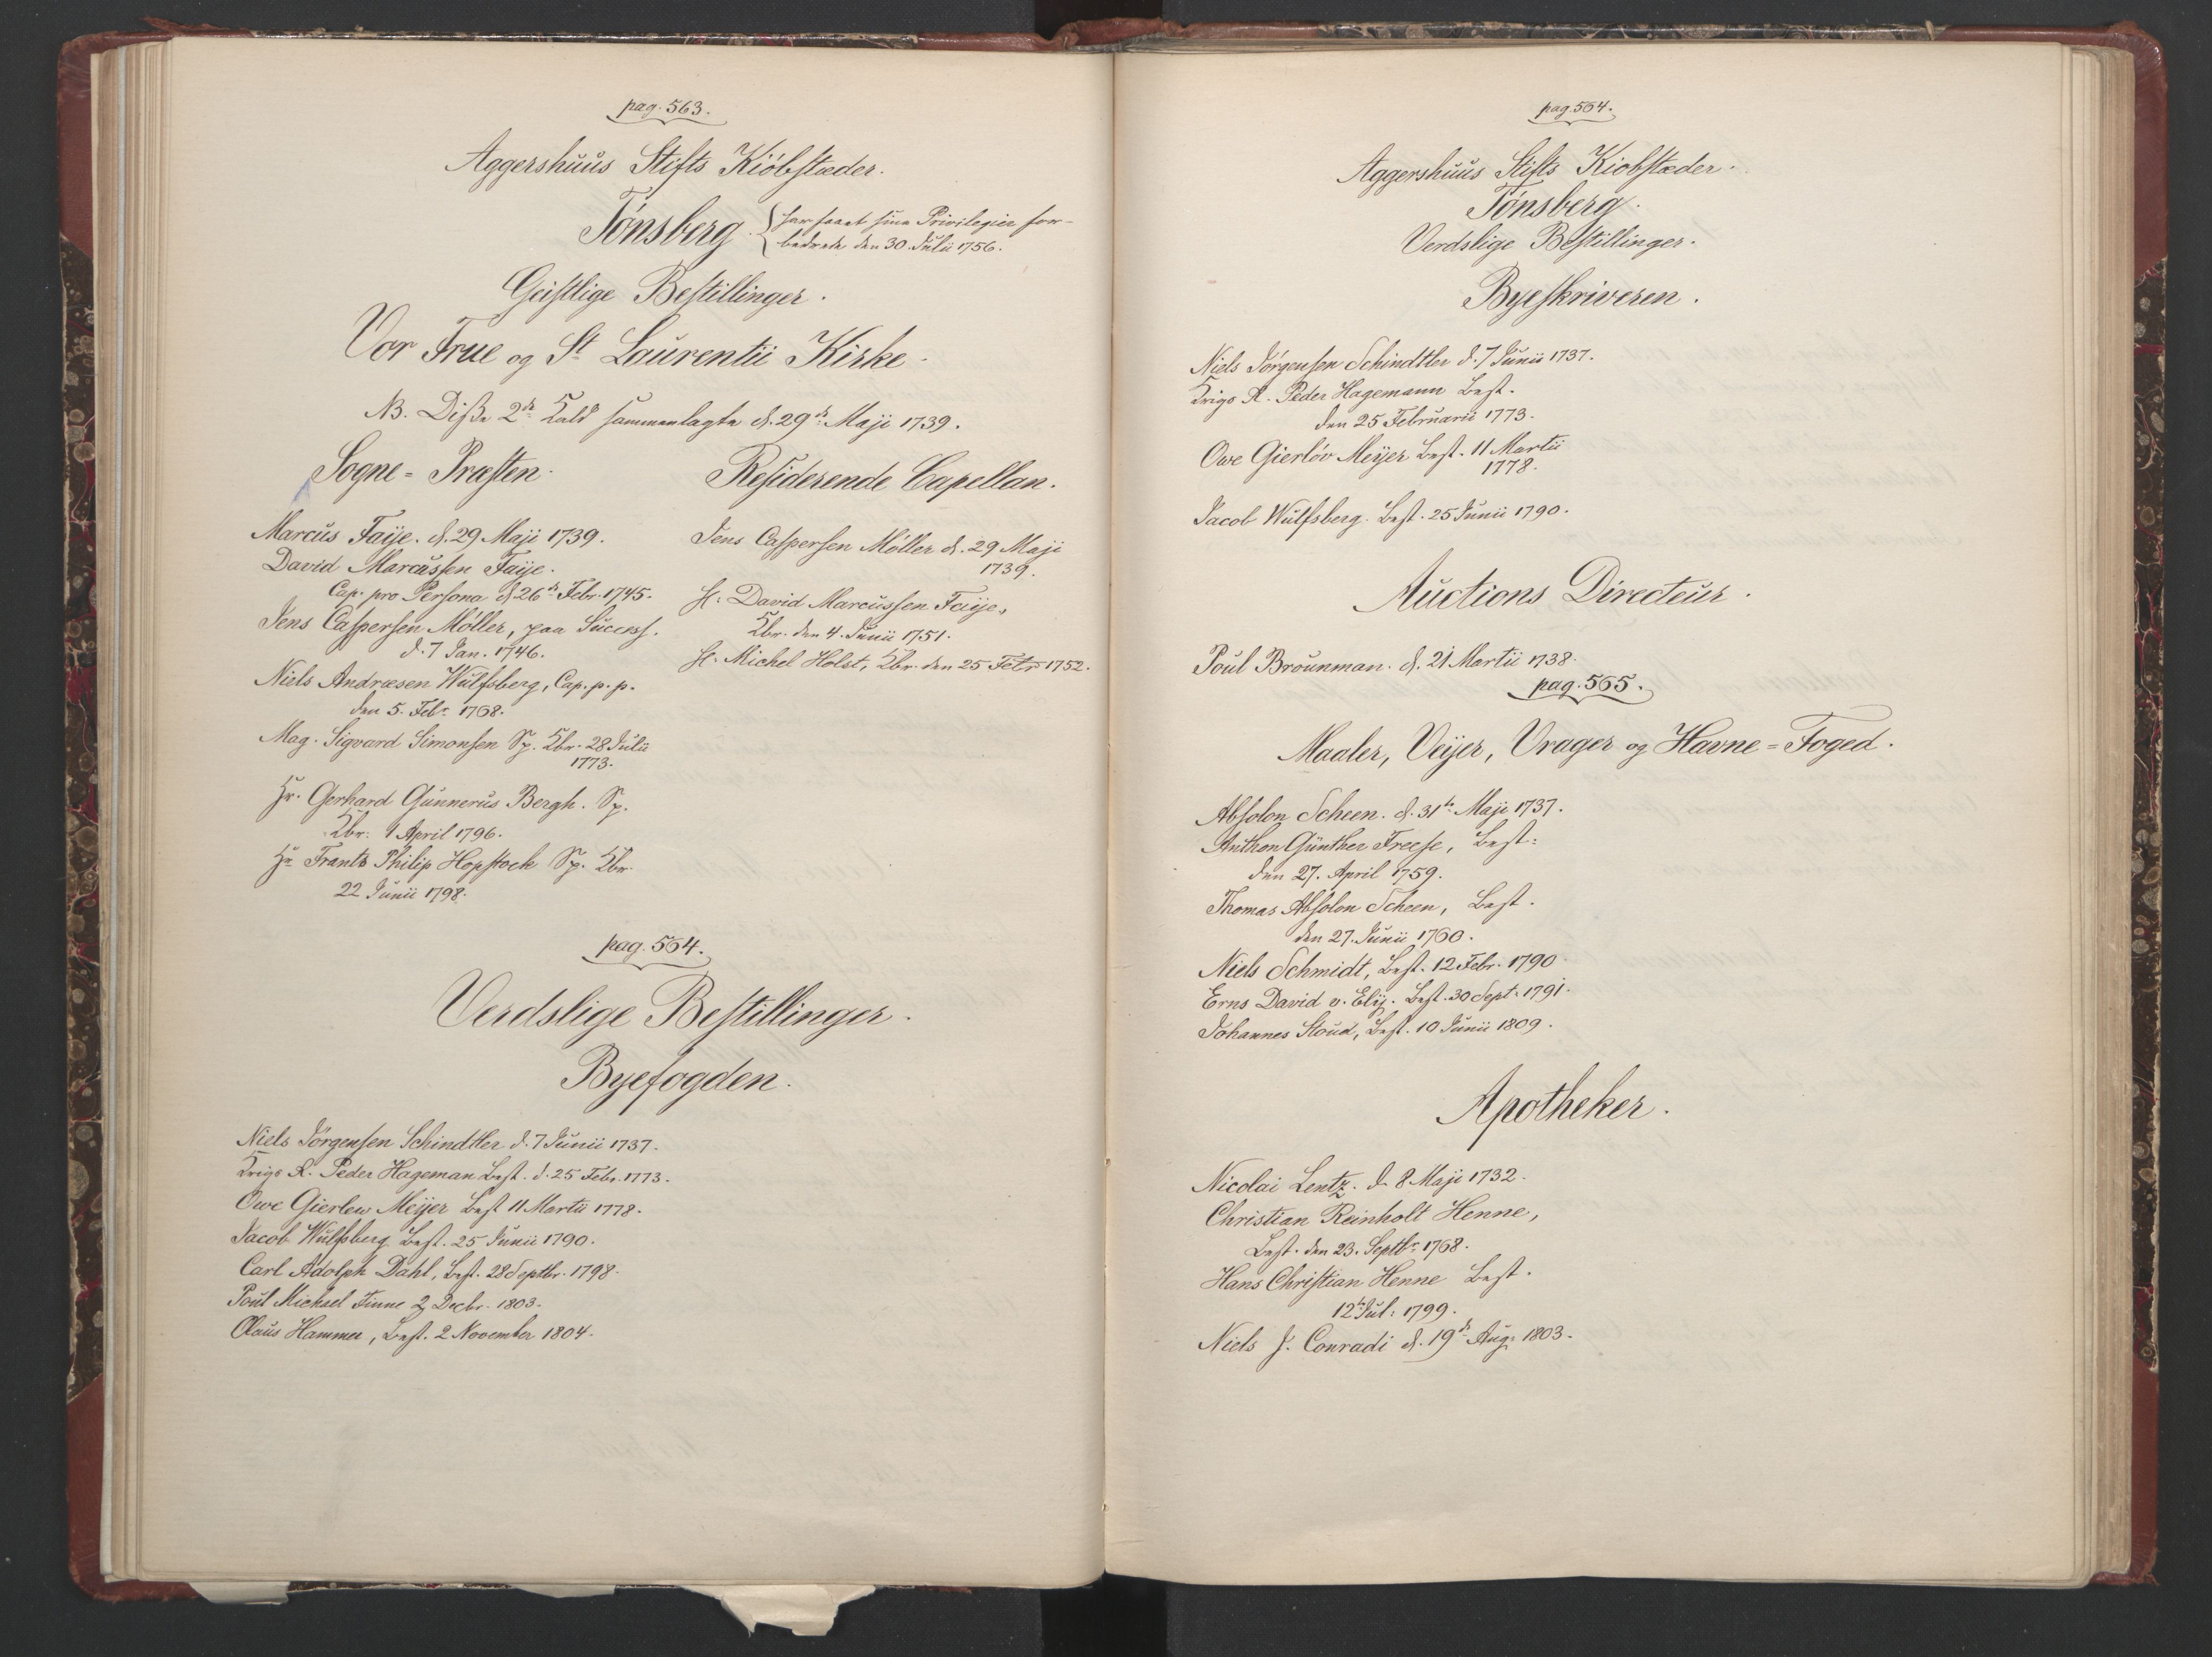 pag. 563.
Aggershuus Stifts Kiöbstæder.
Tönsberg. { har faaet sine Privilegier for-
bedrede den 30. Julii 1756.
Geistlige Bestillinger.
Vor Frue og St Laurentii Kirke.
NB. Disse 2de Kald sammenlagte d. 29de Maji 1739.
Sogne-Præsten.
Marcus Faije. d. 29 Maji 1739.
David Marcussen Faije.
Cap. pro Persona d. 26de Febr. 1745.
Jens Caspersen Möller, paa Success.
d. 7 Jan. 1746.
Niels Andræsen Wulfsberg, Cap. p. p.
den 5. Febr. 1768.
Mag. Sigvard Simonsen Sp. Kbr. 28 Julii
1773.
Hr. Gerhard Gunnerus Bergh. Sp.
Kbr. 1 April 1796.
Hr. Frantz Philip Hopstock Sp. Kbr.
22 Junii 1798.
Residerende Capellan.
Jens Caspersen Möller d. 29 Maji
1739.
H. David Marcussen Faije,
Kbr. den 4. Junii 1751.
H. Michel Holst, Kbr. den 25 Febr 1752.
pag. 564.
Verdslige Bestillinger.
Byefogden.
Niels Jörgensen Schindtler d. 7 Junii 1737.
Krigs R. Peder Hageman Best. d. 25 Febr. 1773.
Owe Gierlew Meijer Best 11 Martii 1778.
Jacob Wulfsberg Best. 25 Junii 1790.
Carl Adolph Dahl, Best. 28 Septbr. 1798.
Poul Michael Finne 2 Decbr. 1803.
Claus Hammer, Best. 2 November 1804.
pag. 564.
Aggershuus Stifts Kiobstæder.
Tönsberg.
Verdslige Bestillinger.
Byeskriveren.
Niels Jörgensen Schindtler d. 7 Junii 1737.
Krigs R. Peder Hagemann Best.
den 25 Februarii 1773.
Owe Gierlöv Meijer Best. 11 Martii
1778.
Jacob Wulfsberg. Best. 25 Junii 1790.
Auctions Directeur.
Poul Brounman. d. 21 Martii 1738.
pag. 565.
Maaler, Veijer, Vrager og Havne-Foged.
Absolon Scheen. d. 31te Maji 1737.
Anthon Günther Freese, Best:
den 27. April 1759.
Thomas Absolon Scheen, Best.
den 27. Junii 1760.
Niels Schmidt, Best. 12 Febr. 1790
Erns David v. Elij. Best. 30 Sept. 1791.
Johannes Stoud, Best. 10 Junii 1809.
Apotheker.
Nicolai Lentz. d. 8 Maji 1732.
Christian Reinholt Henne,
Best. den 23. Septbr. 1768.
Hans Christian Henne Best.
12te Jul: 1799.
Niels J. Conradi d. 19de Aug. 1803.